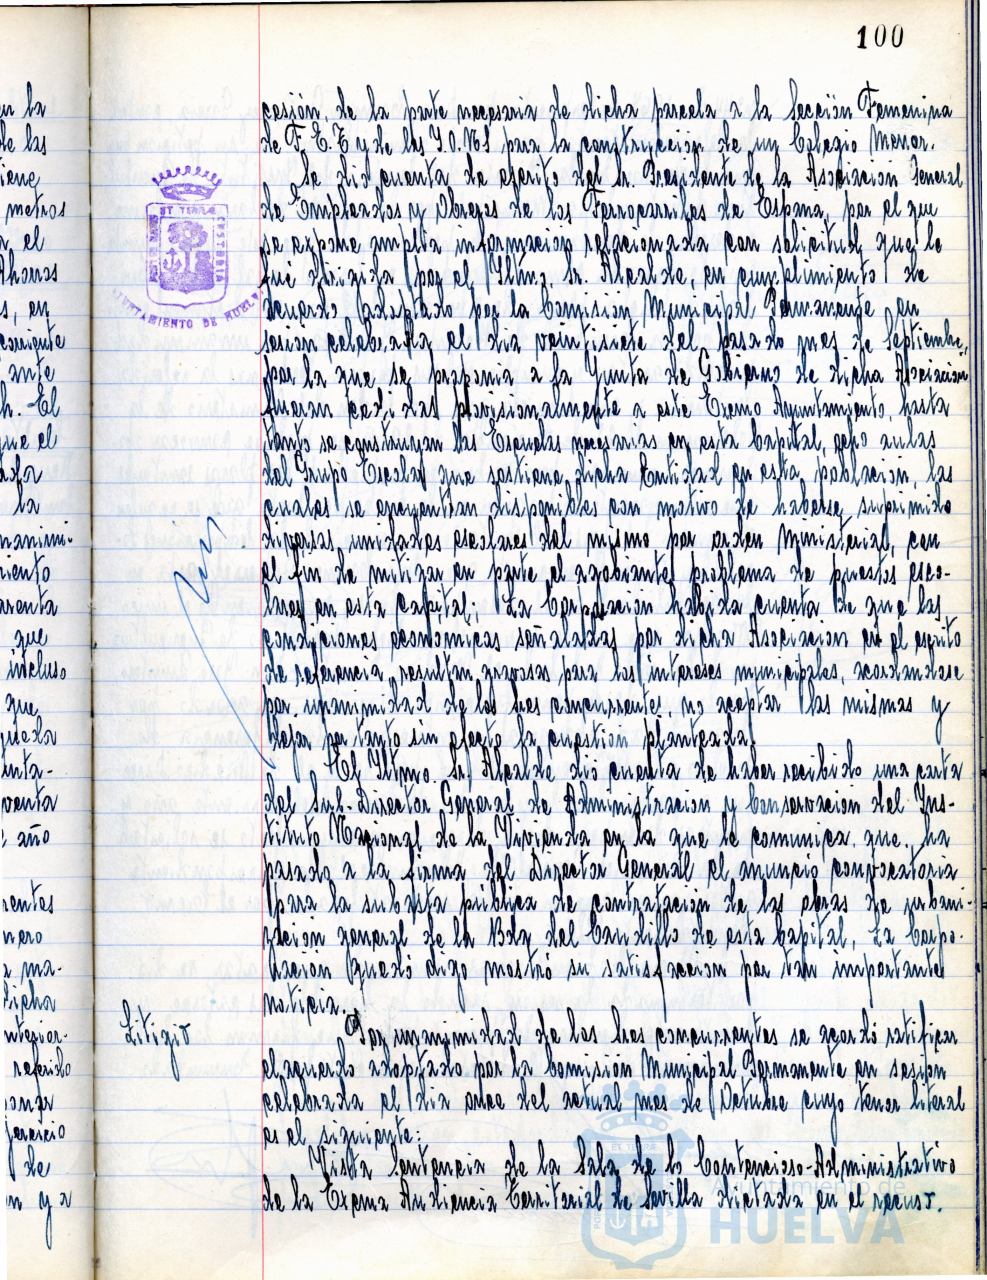 100
cesión, de la parte necesaria de dicha parcela a la Sección Femenina
de F. E. T y de las J.O.N.S para la construcción de un Colegio Menor.
Se dió cuenta de escrito del Sr. Presidente de la Asociacion General
de Empleados y Obreros de los Ferrocarriles de España, por el que
se expone amplia informacion relacionada con solicitud que le
fué dirigida por el Iltmo. Sr. Alcalde, en cumplimiento de
acuerdo adoptado por la Comisión Municipal Permanente en
sesion celebrada el dia veintisiete del pasado mes de Septiembre,
por la que se proponia a la Junta de Gobierno de dicha Asociacion
fueran cedidas provisionalmente a este Excmo Ayuntamiento, hasta
tanto se construyan las Escuelas necesarias en esta Capital, ocho aulas
del Grupo Escolar que sostiene dicha Entidad en esta población, las
cuales se encuentran disponibles con motivo de haberse suprimido
diversas unidades escolares del mismo por orden Ministerial, con
el fin de mitigar en parte el agobiante problema de puestos esco-
lares en esta Capital; La Corporacion habida cuenta de que las
condiciones economicas señaladas por dicha Asociacion en el escrito
de referencia, resultan gravosas para los intereses municipales, acordandose
por unanimidad de los tres concurrentes, no aceptar las mismas y
dejar por tanto sin efecto la cuestion planteada.
El Iltmo. Sr. Alcalde dió cuenta de haber recibido una carta
del Sub-Director General de Administracion y Conservación del Ins-
tituto Nacional de la Vivienda en la que le comunica que ha
pasado a la firma del Director General el anuncio convocatoria
para la subasta pública de contratación de las obras de urbani-
zacion general de la Bda del Caudillo de esta Capital. La Corpo-
ración quedó digo mostró su satisfaccion por tan importante
noticia.
Litigio
Por unanimidad de los tres concurrentes se acordó ratificar
el acuerdo adoptado por la Comisión Municipal Permanente en sesion
celebrada el dia once del actual mes de Octubre cuyo tenor literal
es el siguiente:
Vista Sentencia de la Sala de lo Contencioso-Administrativo
de la Excma Audiencia Territorial de Sevilla dictada en el recur.
AYUNTAMIENTO DE HUELVA
Ayuntamiento de
HUELVA